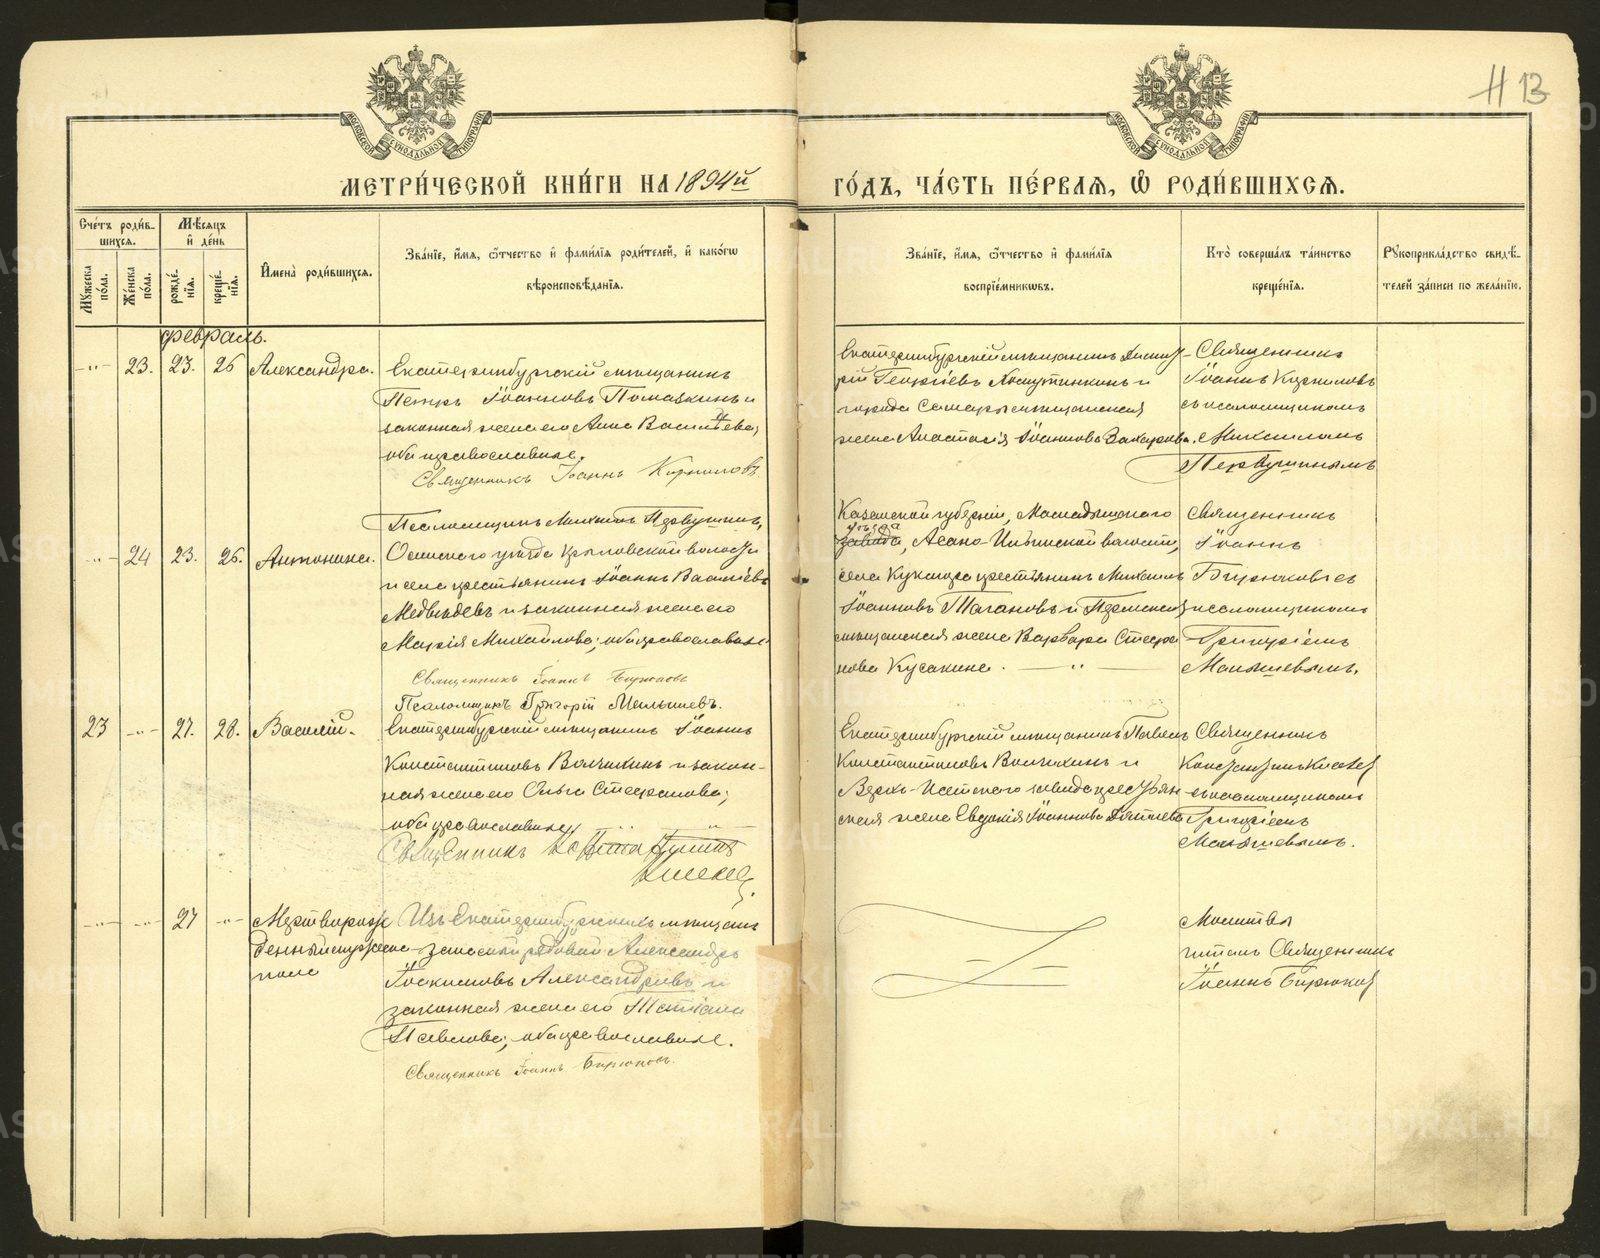 Н 13
МОСКОВСКОЙ СѴНОДАЛЬНОЙ ТИПОГРАФІИ
МОСКОВСКОЙ СѴНОДАЛЬНОЙ ТИПОГРАФІИ
МЕТРИ́ЧЕСКОЙ КНИ́ГИ НА 1894й
ГО́ДЪ, ЧА́СТЬ ПЕ́РВАЯ, Ѡ РОДИ́ВШИХСЯ.
Сче́тъ роди́в-
шихся.
Мѣ́сяцъ
и҆ де́нь
Му́жеска
по́ла.
Же́нска
по́ла.
рожде́-
нїя.
креще́-
нїя.
И҆мена̀ роди́вшихся.
Зва́нїе, и҆́мя, ѻ҆́тчество и҆ фами́лїя роди́телей, и҆ како́гѡ
вѣроисповѣ́данїя.
Зва́нїе, и҆́мя, ѻ҆́тчество и҆ фами́лїя
воспрїе́мниковъ.
Кто̀ соверша́лъ та́инство
креще́нїя.
Рꙋкоприкла́дство свидѣ́-
телей за́писи по жела́нїю.
февраль.
-„- 23. 23. 26 Александра.
Екатеринбургскій мѣщанинъ
Петръ Іоанновъ Помазкинъ и
законная жена его Анна Васильева;
оба православные.
Священникъ Іоаннъ Корниловъ
Псаломщикъ Михаилъ Первушинъ,
Екатеринбургскій мѣщанинъ Димит-
рій Георгіевъ и
города Самары мѣщанская
жена Анастасія Іоаннова Захарова.
Священникъ
Іоаннъ Корниловъ
съ псаломщикомъ
Михаиломъ
Первушинымъ
-„- 24 23. 26. Антонина.
Осинскаго уѣзда Крыловской волости
и села крестьянинъ Іоаннъ Васильевъ
Медвѣдевъ и законная жена его
Марія Михайлова; оба православные
Священникъ Іоаннъ Бирюковъ
Псаломщикъ Григорій Малышевъ.
Казанской губерніи, Мамадышскаго
уѣзда
завода, Асано-Илгинской волости,
села Кукмора крестьянинъ Михаилъ
Іоанновъ Тагановъ и Пермская
мѣщанская жена Варвара Стефа-
нова Кусакина. — „ —
Священникъ
Іоаннъ
Бирюковъ съ
псаломщикомъ
Григоріемъ
Малышевымъ.
23 -„- 27. 28. Василій.
Екатеринбургскій мѣщанинъ Іоаннъ
Константиновъ Волчихинъ и закон-
ная жена его Ольга Стефанова;
оба православные
Священникъ
Екатеринбургскій мѣщанинъ Павелъ
Константиновъ Волчихинъ и
Верхъ-Исетскаго завода крестьян-
ская жена Евдокія Іоаннова
Священникъ
съ псаломщикомъ
Григоріемъ
Малышевымъ.
-„- -„- 27 -„- Мертворож-
денный мужеска
пола
Изъ Екатеринбургскихъ мѣщанъ
запасной рядовой Александръ
Іоакимовъ Александровъ и
законная жена его Татіана
Павлова; оба православные.
Священникъ Іоаннъ Бирюковъ.
Молитвы
читалъ Священникъ
Іоаннъ Бирюковъ